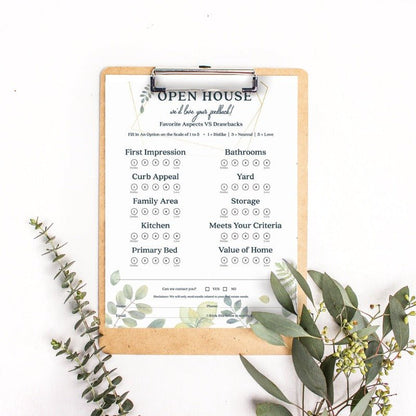 OPEN HOUSE
we'd love your feedback!
Favorite Aspects VS Drawbacks
Fill in An Option on the Scale of 1 to 5 • 1 = Dislike | 3 = Neutral | 5 = Love
First Impression Bathrooms
Curb Appeal Yard
Family Area Storage
Kitchen Meets Your Criteria
Primary Bed Value of Home
Can we contact you? YES NO